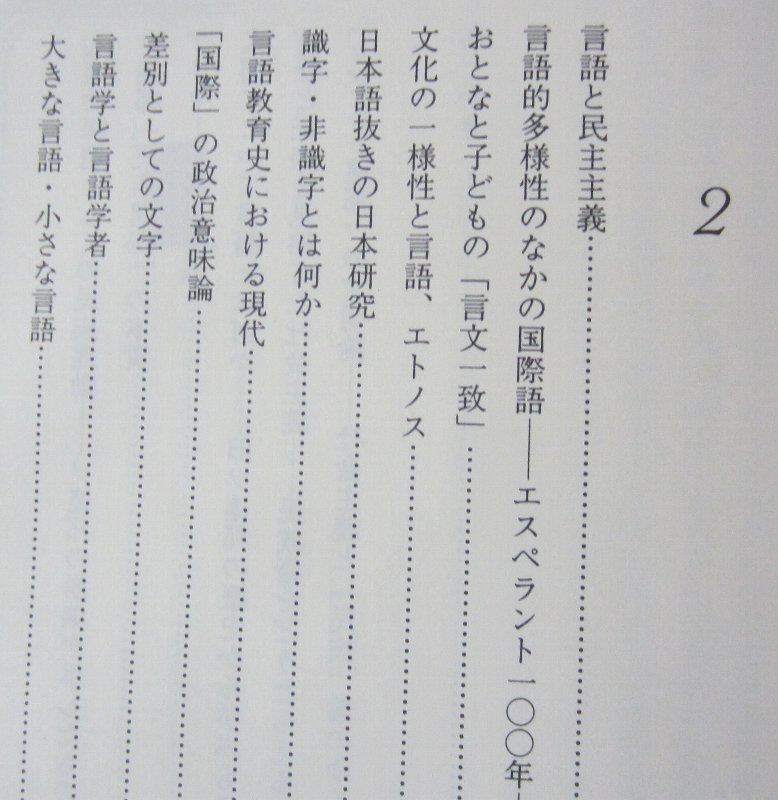 2
言語と民主主義……………………………
言語的多様性のなかの国際語――エスペラント一〇〇年
おとなと子どもの「言文一致」……………………
文化の一様性と言語、エトノス……………………
日本語抜きの日本研究……………………………
識字・非識字とは何か……………………………
言語教育史における現代……………………………
「国際」の政治意味論……………………………
差別としての文字……………………………
言語学と言語学者……………………………
大きな言語・小さな言語……………………………